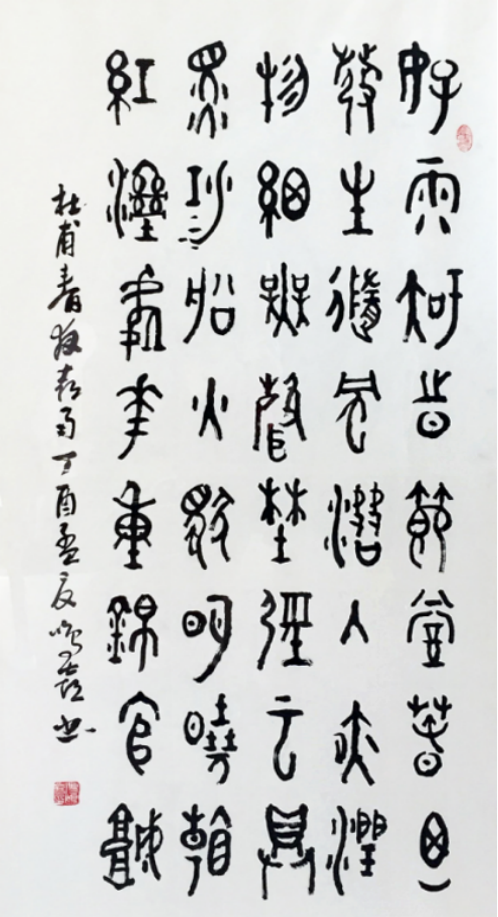 好雨知旹節當春乃
發生隨風潛入夜潤
物細無聲埜徑云俱
黑江船火獨明曉看
紅濕處花重錦官城
杜甫春夜喜雨丁酉孟夏书